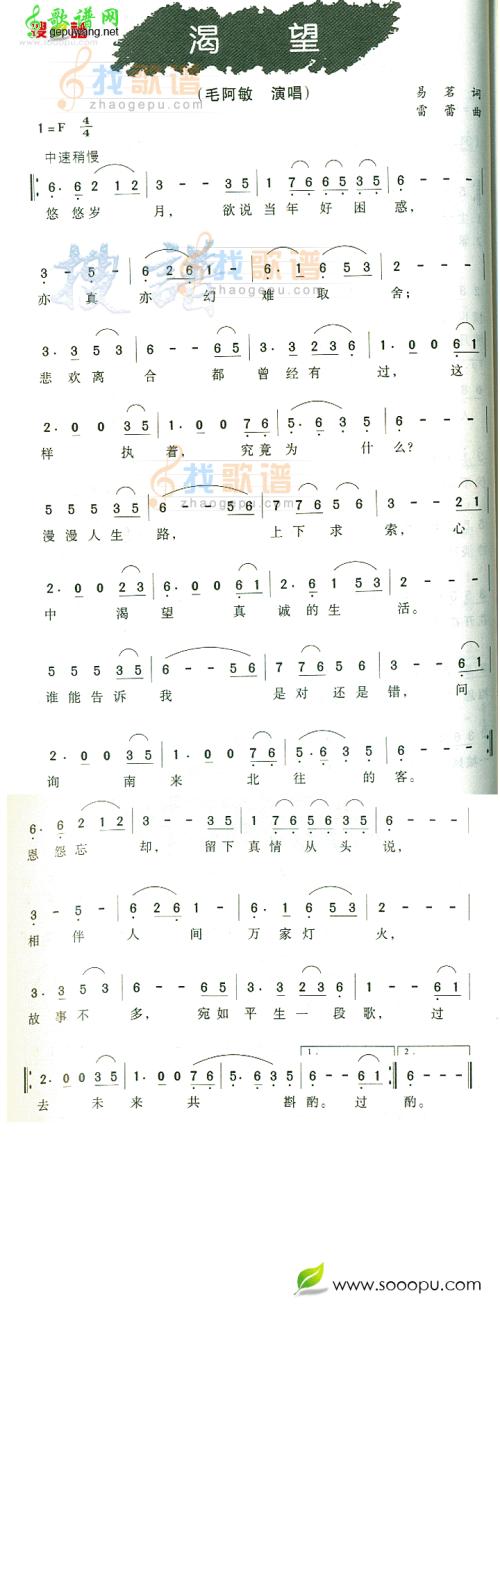 搜谱 歌谱网
www.gepuwang.net
渴 望
找歌谱
zhaogepu.com
(毛阿敏 演唱)
易茗 词
雷蕾 曲
1=F 4/4
中速稍慢
6. 6 2 1 2 | 3 - - 3 5 | 1 7 6 6 5 3 5 | 6 - - - |
悠悠岁 月, 欲说当年好困惑,
3 - 5 - | 6 2 6 1 - | 6. 1 6 5 3 | 2 - - - |
亦真亦幻难取舍;
搜谱 找歌谱
zhaogepu.com
3. 3 3 5 3 | 6 - - 6 5 | 3. 3 2 3 6 | 1. 0 0 6 1 |
悲欢离合都曾经有过,这
2. 0 0 3 5 | 1. 0 0 7 6 | 5. 6 3 5 | 6 - - - |
样执着,究竟为什么?
找歌谱
zhaogepu.com
5 5 5 3 5 | 6 - - 5 6 | 7 7 6 5 6 | 3 - - 2 1 |
漫漫人生路, 上下求索,心
2. 0 0 2 3 | 6. 0 0 6 1 | 2. 6 1 5 3 | 2 - - - |
中渴望真诚的生活。
5 5 5 3 5 | 6 - - 5 6 | 7 7 6 5 6 | 3 - - 6 1 |
谁能告诉我 是对还是错,问
2. 0 0 3 5 | 1. 0 0 7 6 | 5. 6 3 5 | 6 - - - :|
询南来北往的客。
6. 6 2 1 2 | 3 - - 3 5 | 1 7 6 5 6 3 5 | 6 - - - |
恩怨忘却,留下真情从头说,
3 - 5 - | 6 2 6 1 - | 6. 1 6 5 3 | 2 - - - |
相伴人间万家灯火,
3. 3 5 3 | 6 - - 6 5 | 3. 3 2 3 6 | 1 - - 6 1 |
故事不多,宛如平生一段歌,过
1. 2.
|: 2. 0 0 3 5 | 1. 0 0 7 6 | 5. 6 3 5 | 6 - - 6 1 :| 6 - - - |
去未来共斟酌。过酌。
www.sooopu.com